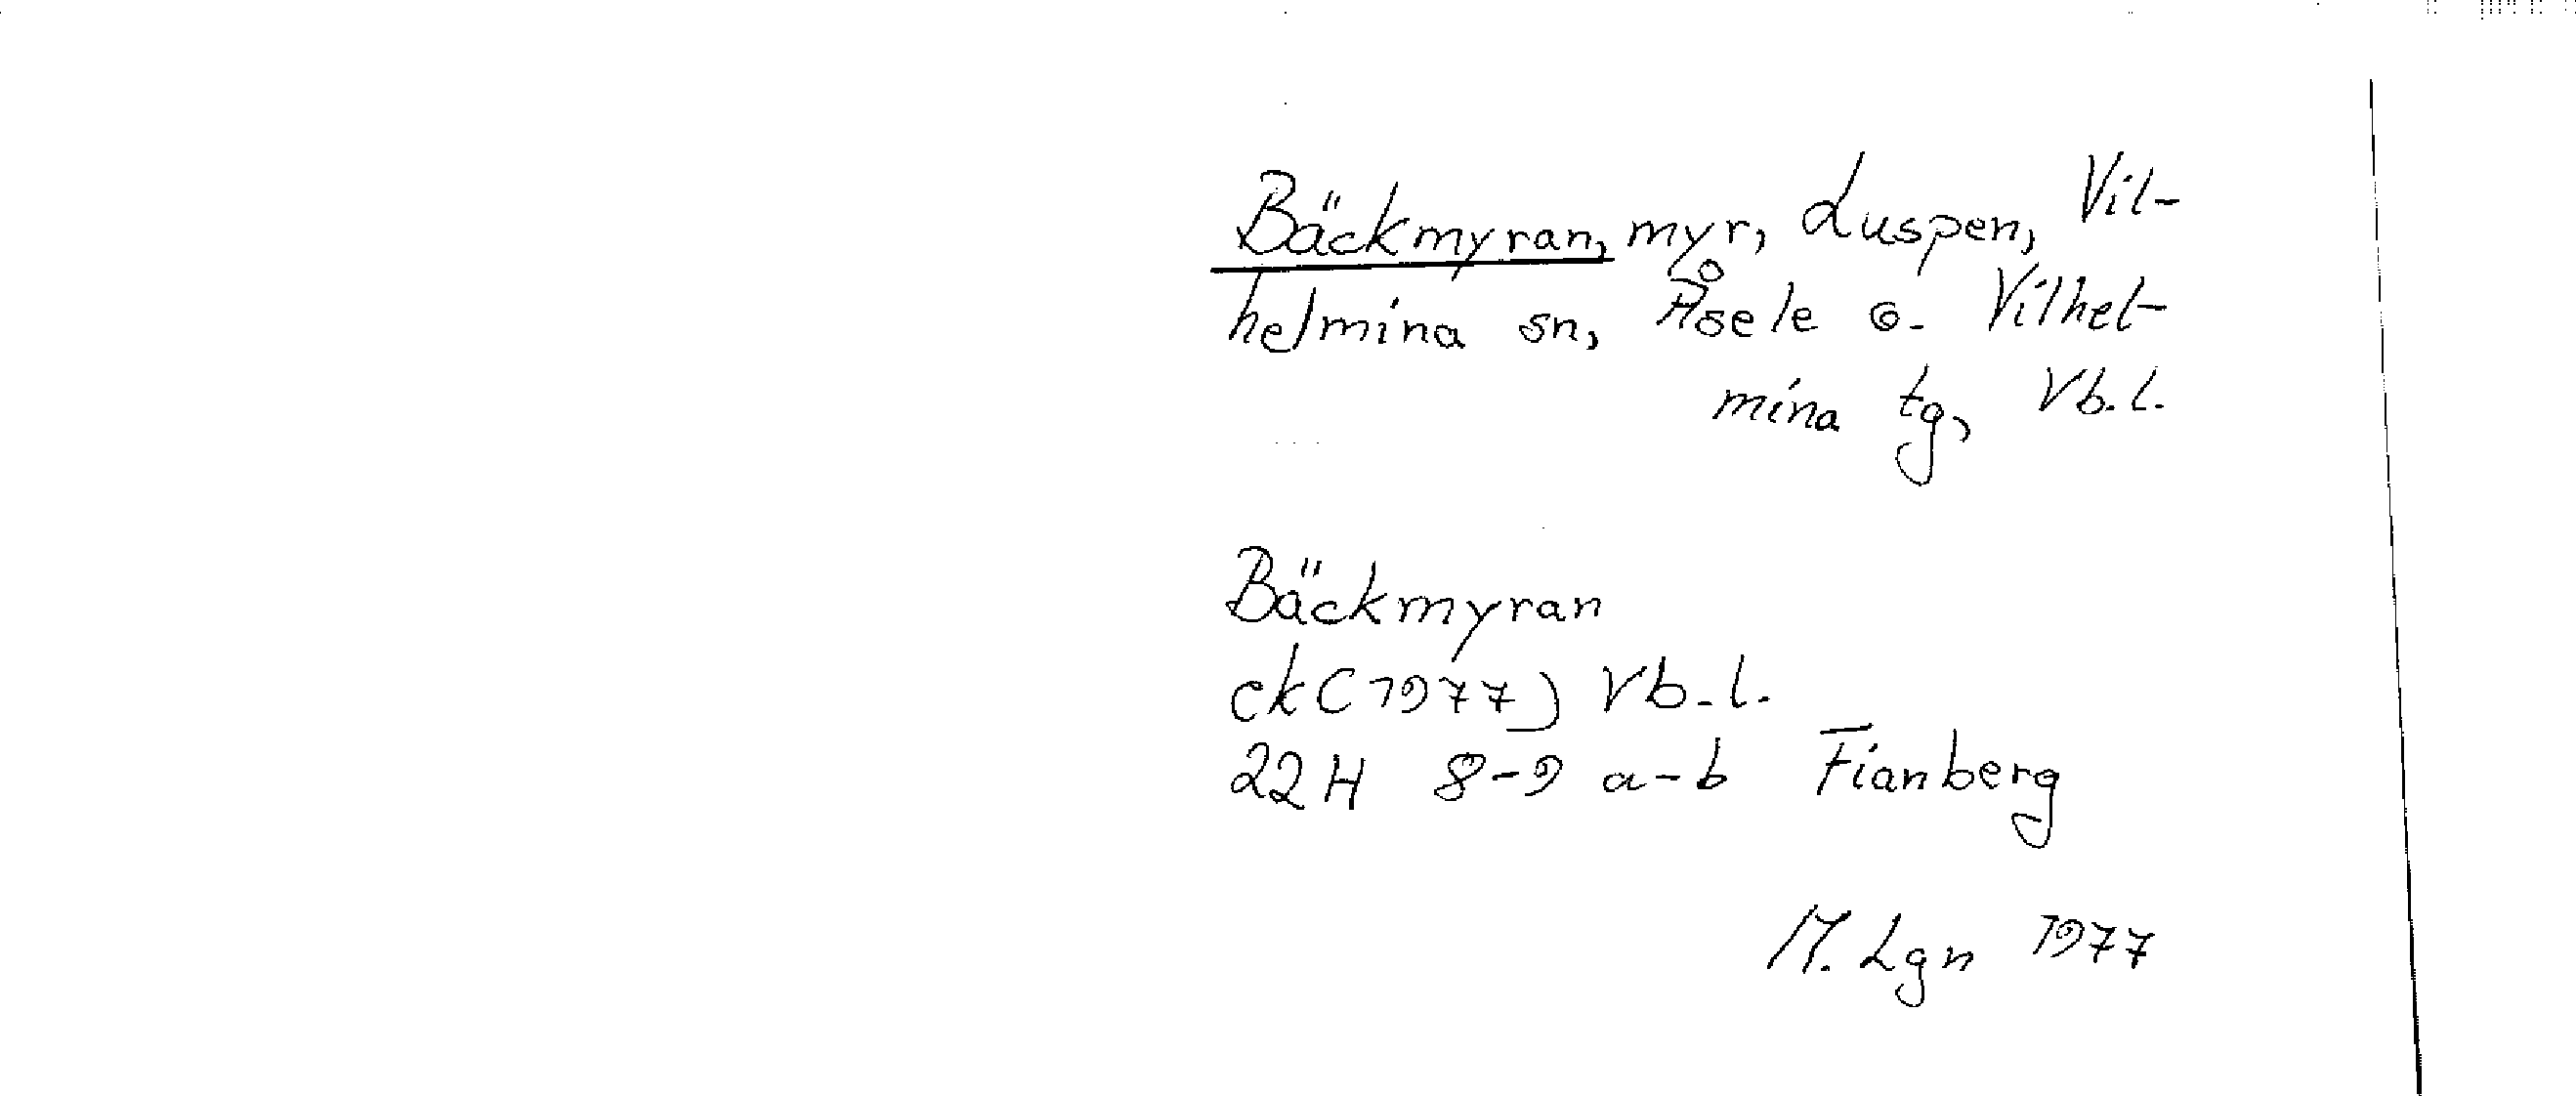 Bäckmyran, myr, Luspen, Vil-
helmina sn, Åsele o. Vilhel-
mina tg, Vb.l.
Bäckmyran
ek (1977) Vb.l.
22H 8-9 a-b Fianberg
M. Lgn 1977